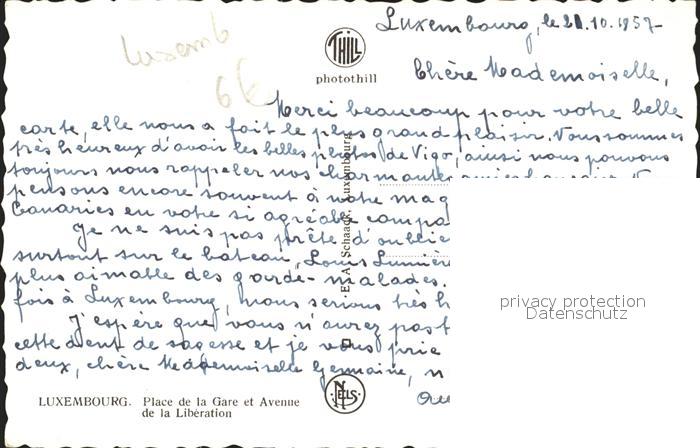 Luxembourg, le 21.10.1957
Luxemb
THILL
photothill
6€
Chère Mademoiselle,
Merci beaucoup pour votre belle
carte, elle nous a fait le plus grand plaisir. Vous sommes
très heureux d'avoir les belles photos de Vigo, ainsi nous pouvons
toujours nous rappeler nos charmantes
pensons encore souvent à notre mag
Canaries en votre si agréable compa
Je ne suis pas prête d'oublie
surtout sur le bateau, Louis Lumièr
plus aimable des garde-malades.
fois à Luxembourg, nous serions très h
J'espère que vous n'aurez pas t
cette dent de sagesse et je vous prie
deux, chère Mademoiselle Germaine, n
E. A. Schaack, Luxembourg
privacy protection
Datenschutz
LUXEMBOURG. Place de la Gare et Avenue
de la Libération
NELS